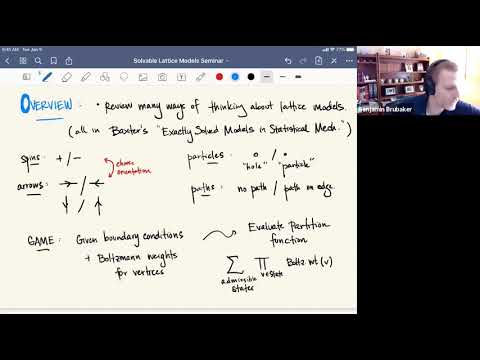 9:40 AM Tue Jan 9
77%
Solvable Lattice Models Seminar
OVERVIEW : • Review many ways of thinking about lattice models.
(all in Baxter's "Exactly Solved Models in Statistical Mech.")
spins : + / -
particles : ∘ / •
"hole" "particle"
choose orientation
arrows :
paths : no path / path on edge.
GAME : Given boundary conditions
+ Boltzmann weights
for vertices
Evaluate Partition
function
∑ ∏ Boltz. wt (v)
admissible states v∈state
Benjamin Brubaker